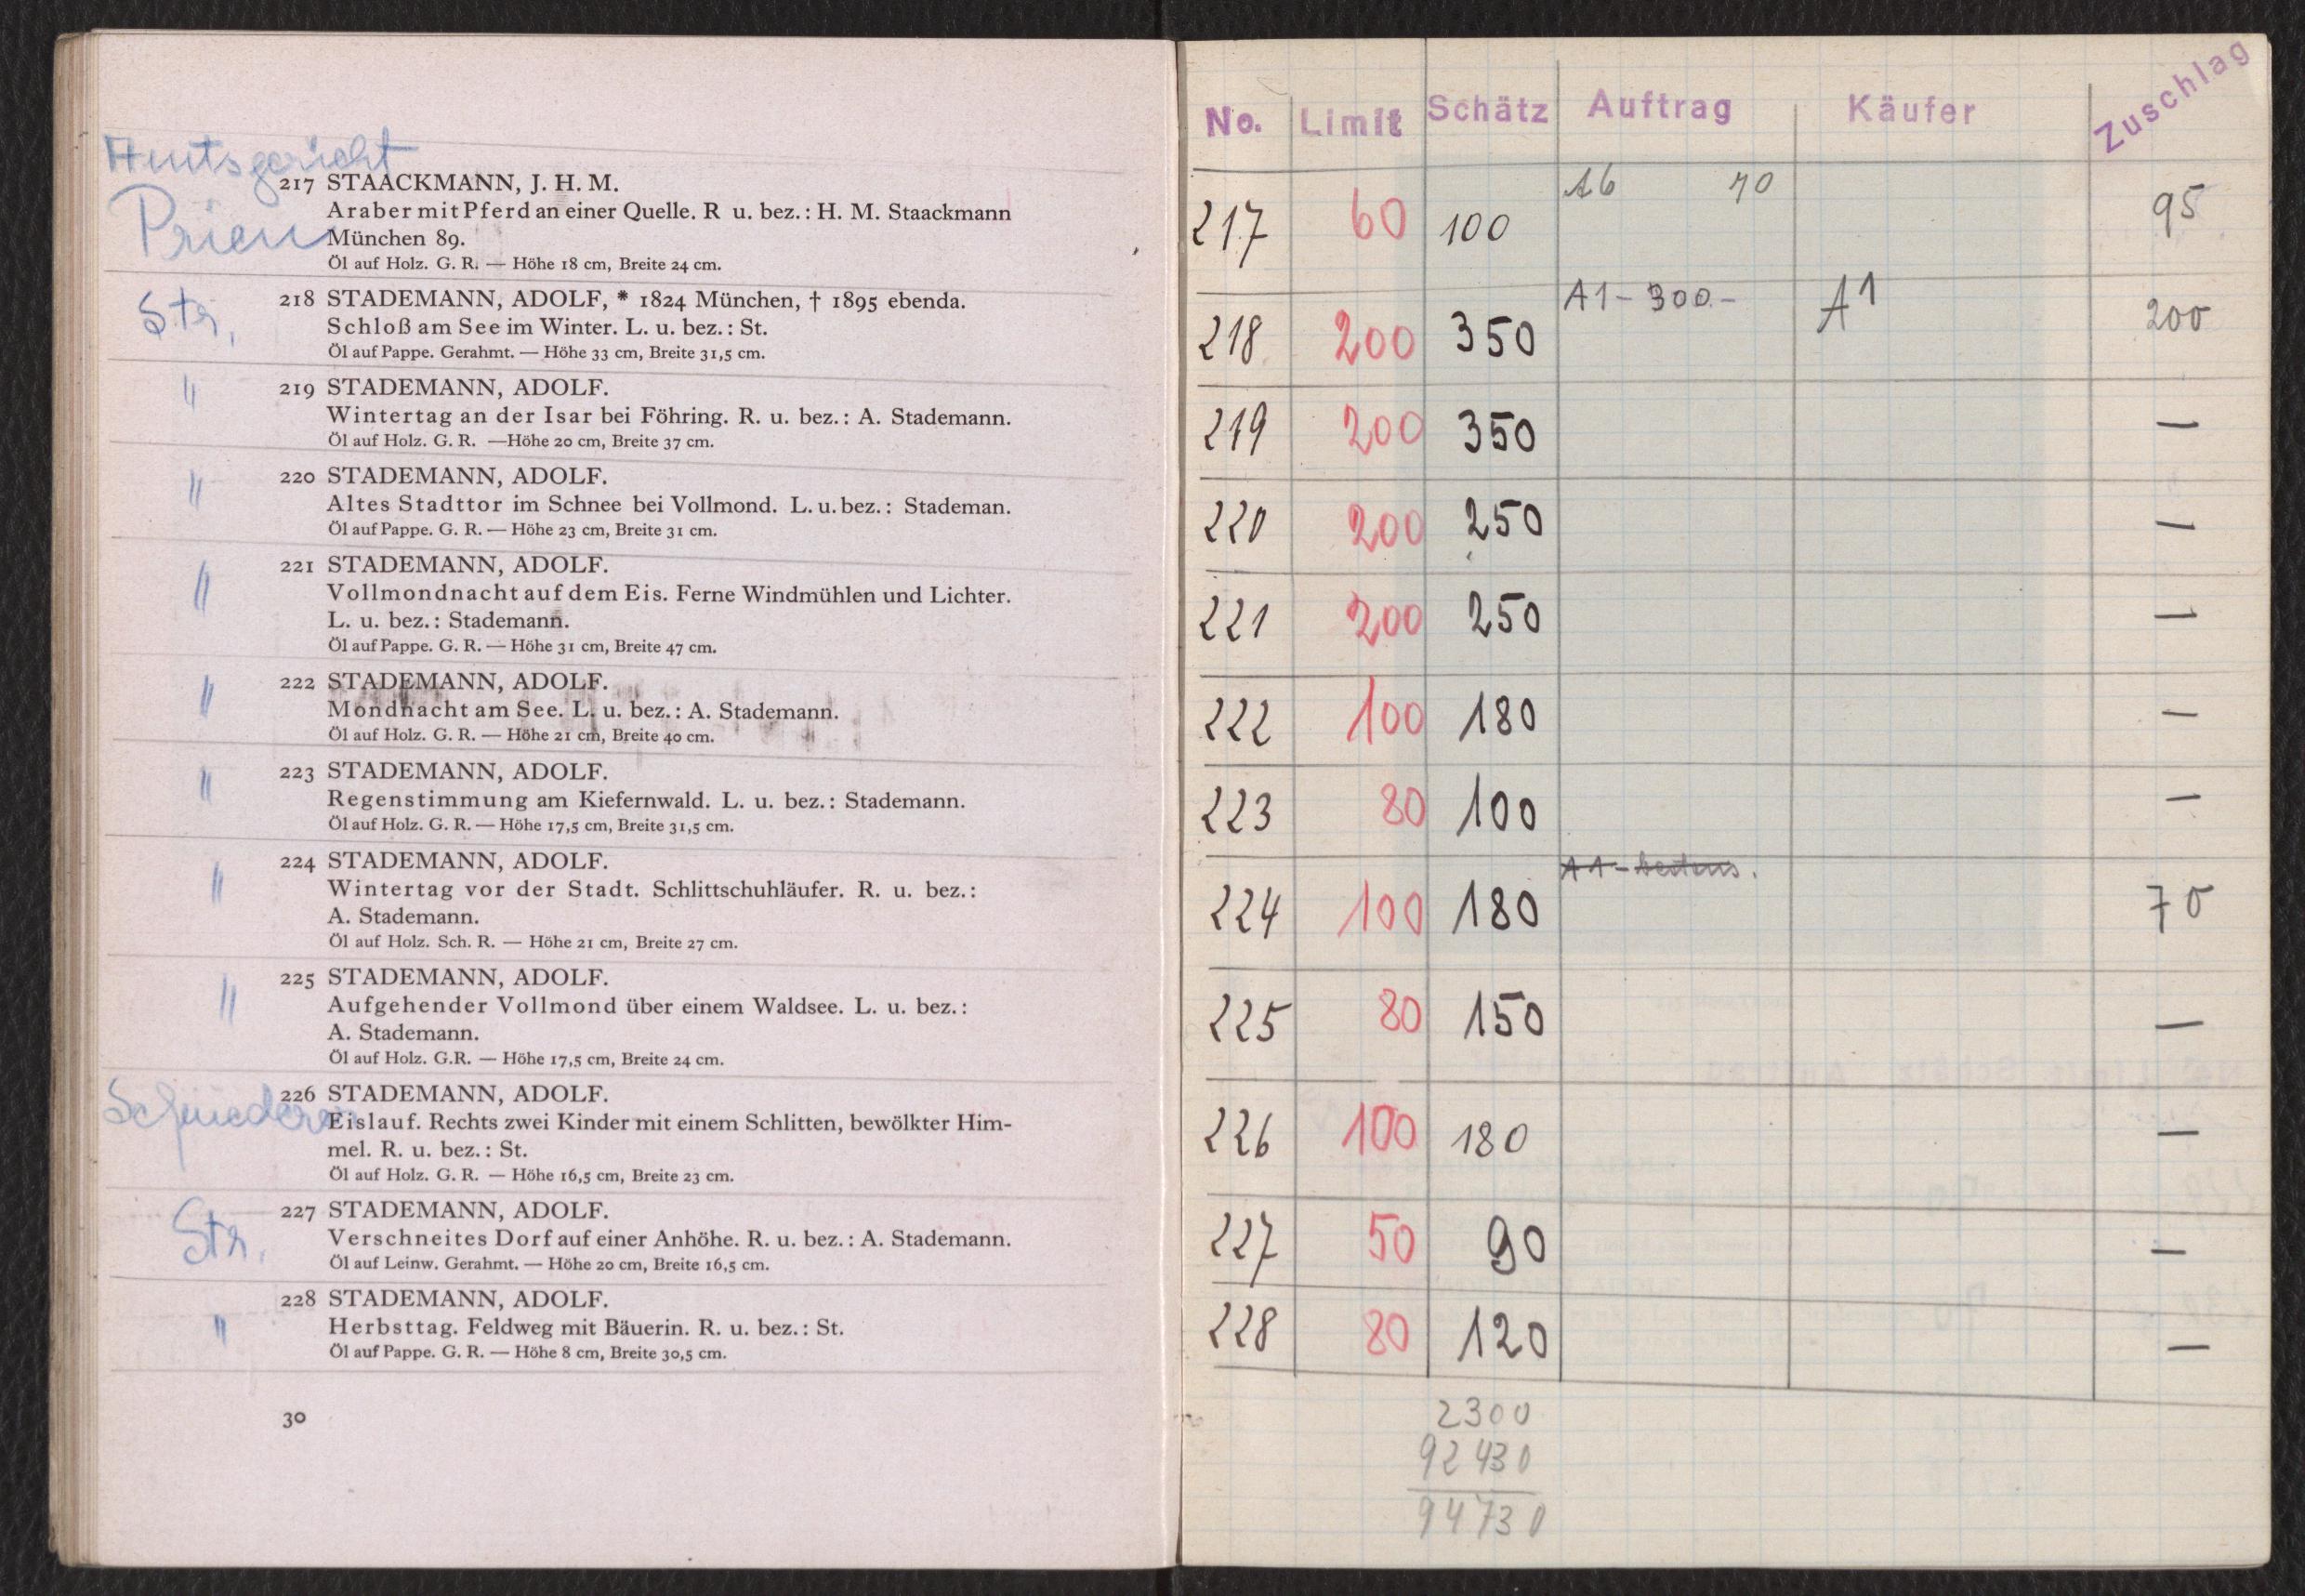 Amtsgericht
Prien
217 STAACKMANN, J. H. M.
Araber mit Pferd an einer Quelle. R u. bez.: H. M. Staackmann
München 89.
Öl auf Holz. G. R. — Höhe 18 cm, Breite 24 cm.
Str.
218 STADEMANN, ADOLF, * 1824 München, † 1895 ebenda.
Schloß am See im Winter. L. u. bez.: St.
Öl auf Pappe. Gerahmt. — Höhe 33 cm, Breite 31,5 cm.
"
219 STADEMANN, ADOLF.
Wintertag an der Isar bei Föhring. R. u. bez.: A. Stademann.
Öl auf Holz. G. R. —Höhe 20 cm, Breite 37 cm.
"
220 STADEMANN, ADOLF.
Altes Stadttor im Schnee bei Vollmond. L. u. bez.: Stademan.
Öl auf Pappe. G. R. — Höhe 23 cm, Breite 31 cm.
"
221 STADEMANN, ADOLF.
Vollmondnacht auf dem Eis. Ferne Windmühlen und Lichter.
L. u. bez.: Stademann.
Öl auf Pappe. G. R. — Höhe 31 cm, Breite 47 cm.
"
222 STADEMANN, ADOLF.
Mondnacht am See. L. u. bez.: A. Stademann.
Öl auf Holz. G. R. — Höhe 21 cm, Breite 40 cm.
"
223 STADEMANN, ADOLF.
Regenstimmung am Kiefernwald. L. u. bez.: Stademann.
Öl auf Holz. G. R. — Höhe 17,5 cm, Breite 31,5 cm.
"
224 STADEMANN, ADOLF.
Wintertag vor der Stadt. Schlittschuhläufer. R. u. bez.:
A. Stademann.
Öl auf Holz. Sch. R. — Höhe 21 cm, Breite 27 cm.
"
225 STADEMANN, ADOLF.
Aufgehender Vollmond über einem Waldsee. L. u. bez.:
A. Stademann.
Öl auf Holz. G.R. — Höhe 17,5 cm, Breite 24 cm.
226 STADEMANN, ADOLF.
Eislauf. Rechts zwei Kinder mit einem Schlitten, bewölkter Him-
mel. R. u. bez.: St.
Öl auf Holz. G. R. — Höhe 16,5 cm, Breite 23 cm.
Str.
227 STADEMANN, ADOLF.
Verschneites Dorf auf einer Anhöhe. R. u. bez.: A. Stademann.
Öl auf Leinw. Gerahmt. — Höhe 20 cm, Breite 16,5 cm.
"
228 STADEMANN, ADOLF.
Herbsttag. Feldweg mit Bäuerin. R. u. bez.: St.
Öl auf Pappe. G. R. — Höhe 8 cm, Breite 30,5 cm.
30
No. Limit Schätz Auftrag Käufer Zuschlag
217 60 100 A6 70 95
218 200 350 A1 - 300.- A1 200
219 200 350 —
220 200 250 —
221 200 250 —
222 100 180 —
223 80 100 —
224 100 180 A1 - bestens. 70
225 80 150 —
226 100 180 —
227 50 90 —
228 80 120 —
2300
92430
94730